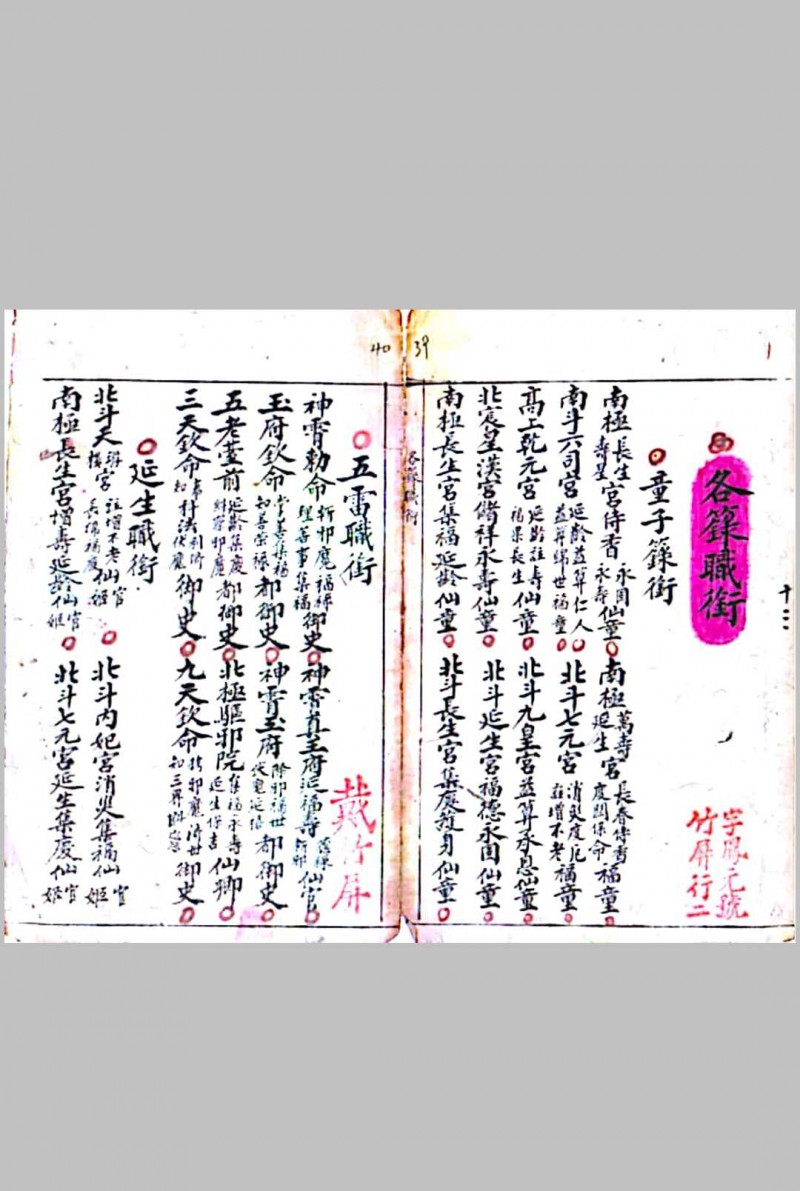 十三
各籙職銜
字鳳元號
竹屏行二
童子籙銜
南極長生壽星宮侍香永固永壽仙童 南極萬壽延生宮長春侍香度關保命福童
南斗六司宮延齡益算仁人益算綿世福童 北斗七元宮消災度厄註增不老福童
高上乾元宮延齡註壽福果長生仙童 北斗九皇宮益算永息仙童
北宸皇漢宮儲祥永壽仙童 北斗延生宮福德永固仙童
南極長生宮集福延齡仙童 北斗長生宮集慶護身仙童
各籙職銜
39
40
五雷職銜
戴竹屏
神霄勅命斬邪魔福祿理善事集福御史 神霄真王府延福壽仙官
玉府欽命掌善集福知善崇祿都御史 神霄玉府除邪福世伏魔延禧都御史
五老臺前延齡集慶糾察邪魔都御史 北極驅邪院集福永壽延生保吉仙卿
三天欽命事判法利濟知伏魔御史 九天欽命捲邪魔濟世知三界御史
延生職銜
北斗天宮註增不老仙官姬 北斗內妃宮消災集福仙官姬
南極長生宮增壽延齡仙官姬 北斗七元宮延生集慶仙官姬